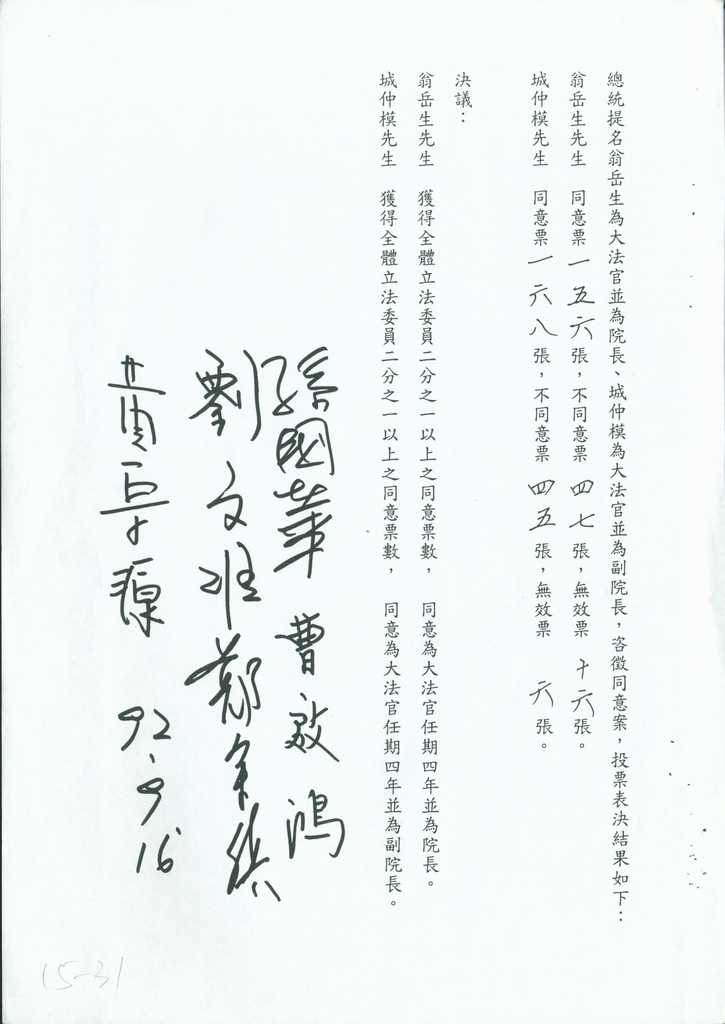 總統提名翁岳生為大法官並為院長、城仲模為大法官並為副院長，咨徵同意案，投票表決結果如下：
翁岳生先生　同意票一五六張，不同意票四七張，無效票十六張。
城仲模先生　同意票一六八張，不同意票四五張，無效票六張。
決議：
翁岳生先生　獲得全體立法委員二分之一以上之同意票數，　同意為大法官任期四年並為院長。
城仲模先生　獲得全體立法委員二分之一以上之同意票數，　同意為大法官任期四年並為副院長。
孫國華　曹啟鴻
劉文雄
92.9.16
15-31